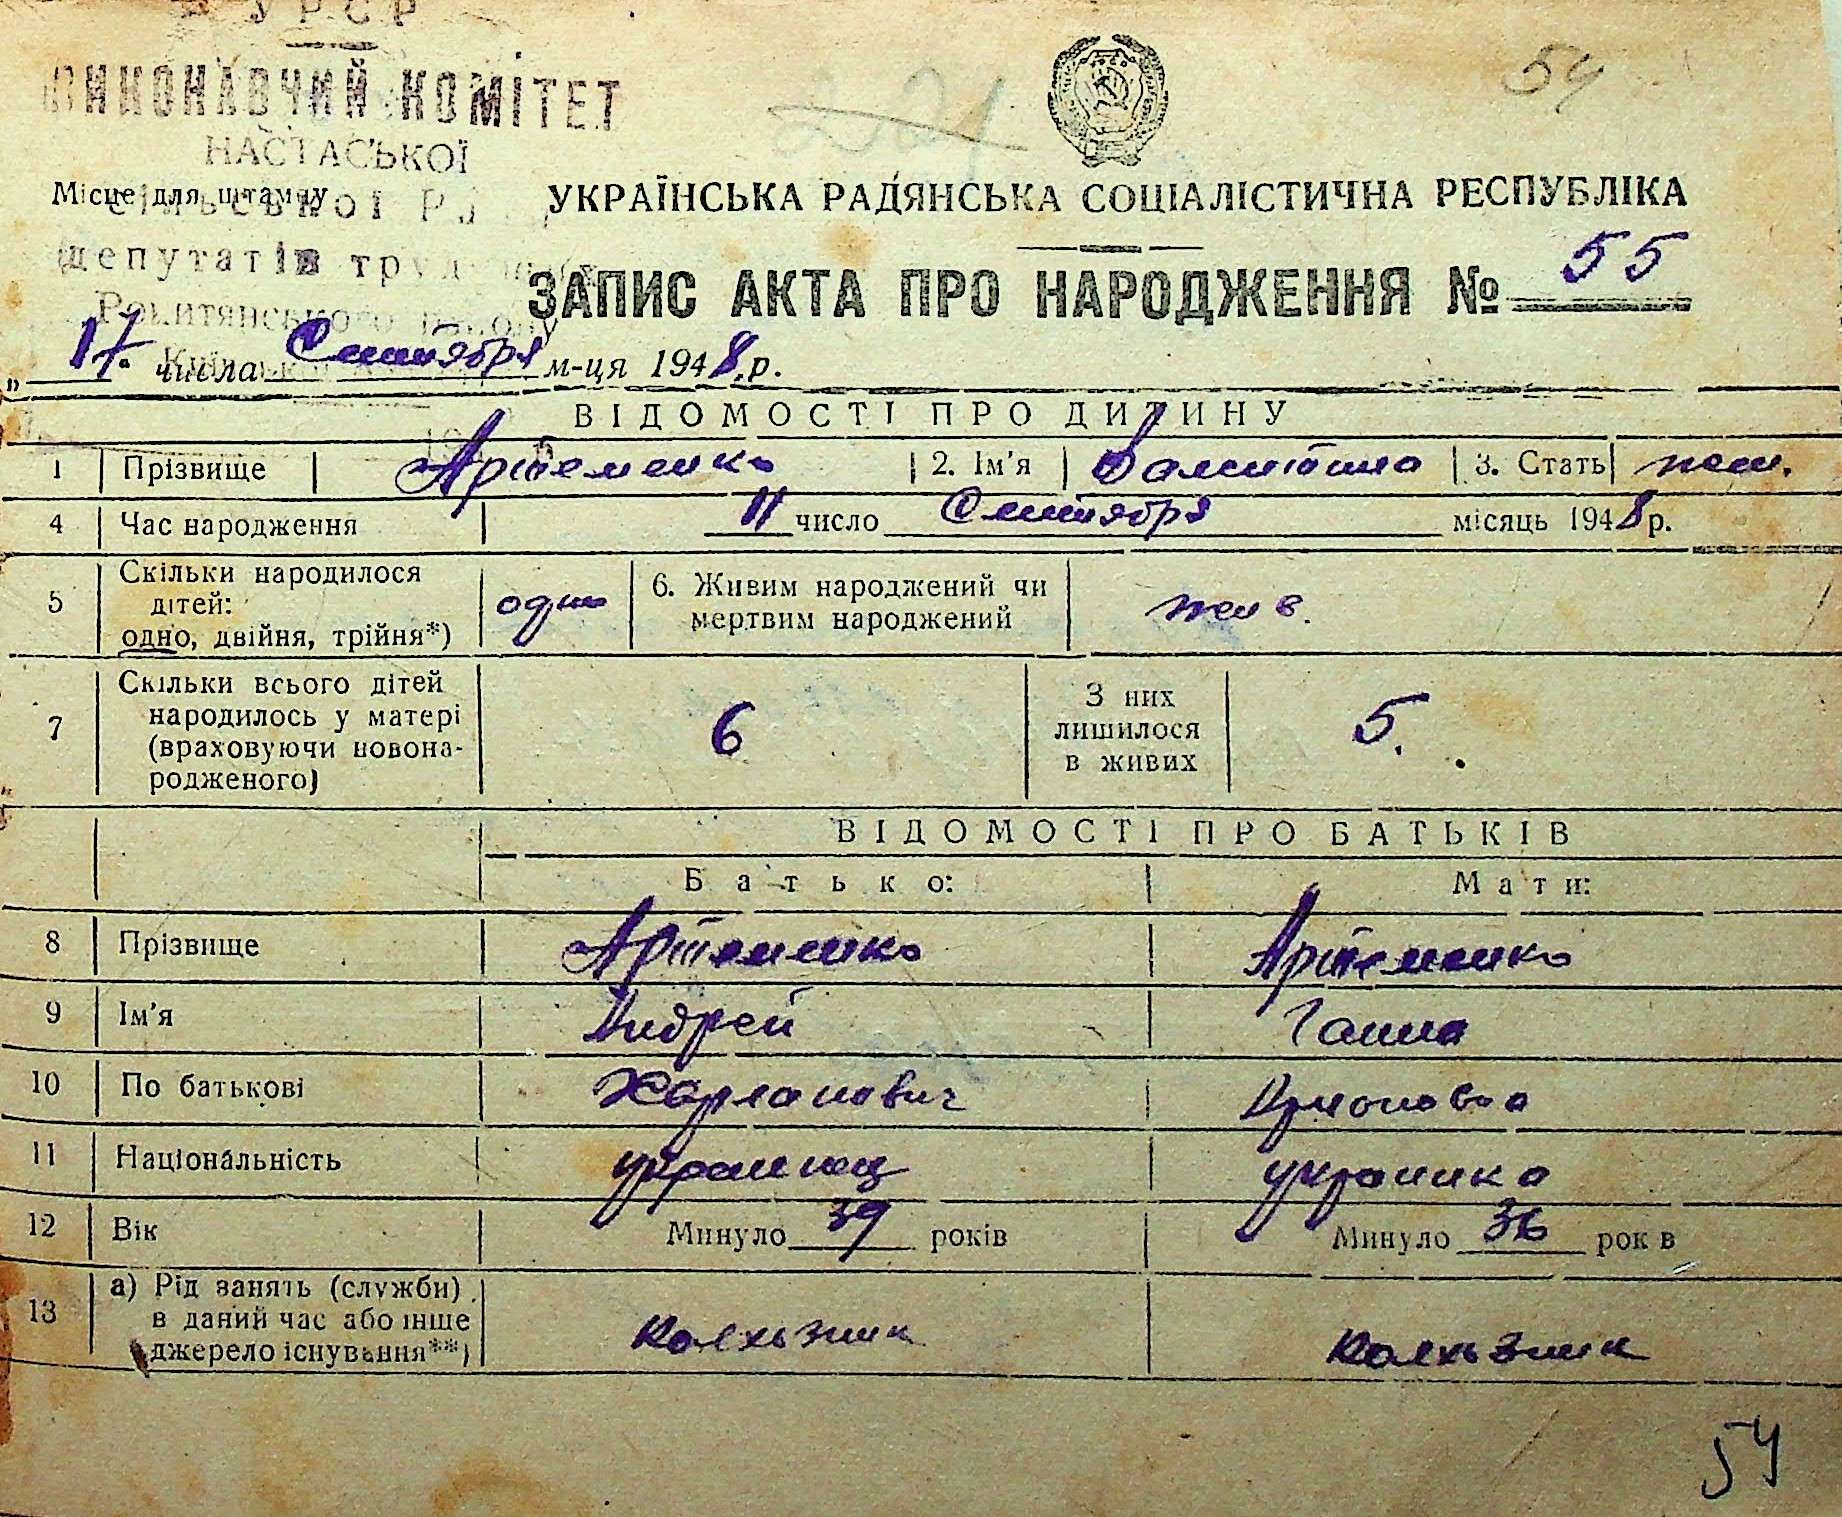 УРСР
ВИКОНАВЧИЙ КОМІТЕТ
НАСТАСЬКОЇ
сільської Ради
депутатів трудящих
Рокитянського району
Місце для штампу
54
УКРАЇНСЬКА РАДЯНСЬКА СОЦІАЛІСТИЧНА РЕСПУБЛІКА
ЗАПИС АКТА ПРО НАРОДЖЕННЯ № 55
„ 17. числа Сентября м-ця 1948 р.
ВІДОМОСТІ ПРО ДИТИНУ
1 Прізвище Артеменко 2. Ім'я Валентина 3. Стать жен.
4 Час народження 11 число Сентября місяць 1948 р.
5 Скільки народилося
дітей:
одно, двійня, трійня*)
одно
6. Живим народжений чи
мертвим народжений
жив.
7 Скільки всього дітей
народилось у матері
(враховуючи новона-
родженого)
6
З них
лишилося
в живих
5.
ВІДОМОСТІ ПРО БАТЬКІВ
Батько: Мати:
8 Прізвище Артеменко Артеменко
9 Ім'я Андрей Ганна
10 По батькові Харланович
11 Національність украинец украинка
12 Вік Минуло 39 років Минуло 36 років
13 а) Рід занять (служби)
в даний час або інше
джерело існування**)
колхозник колхозник
54